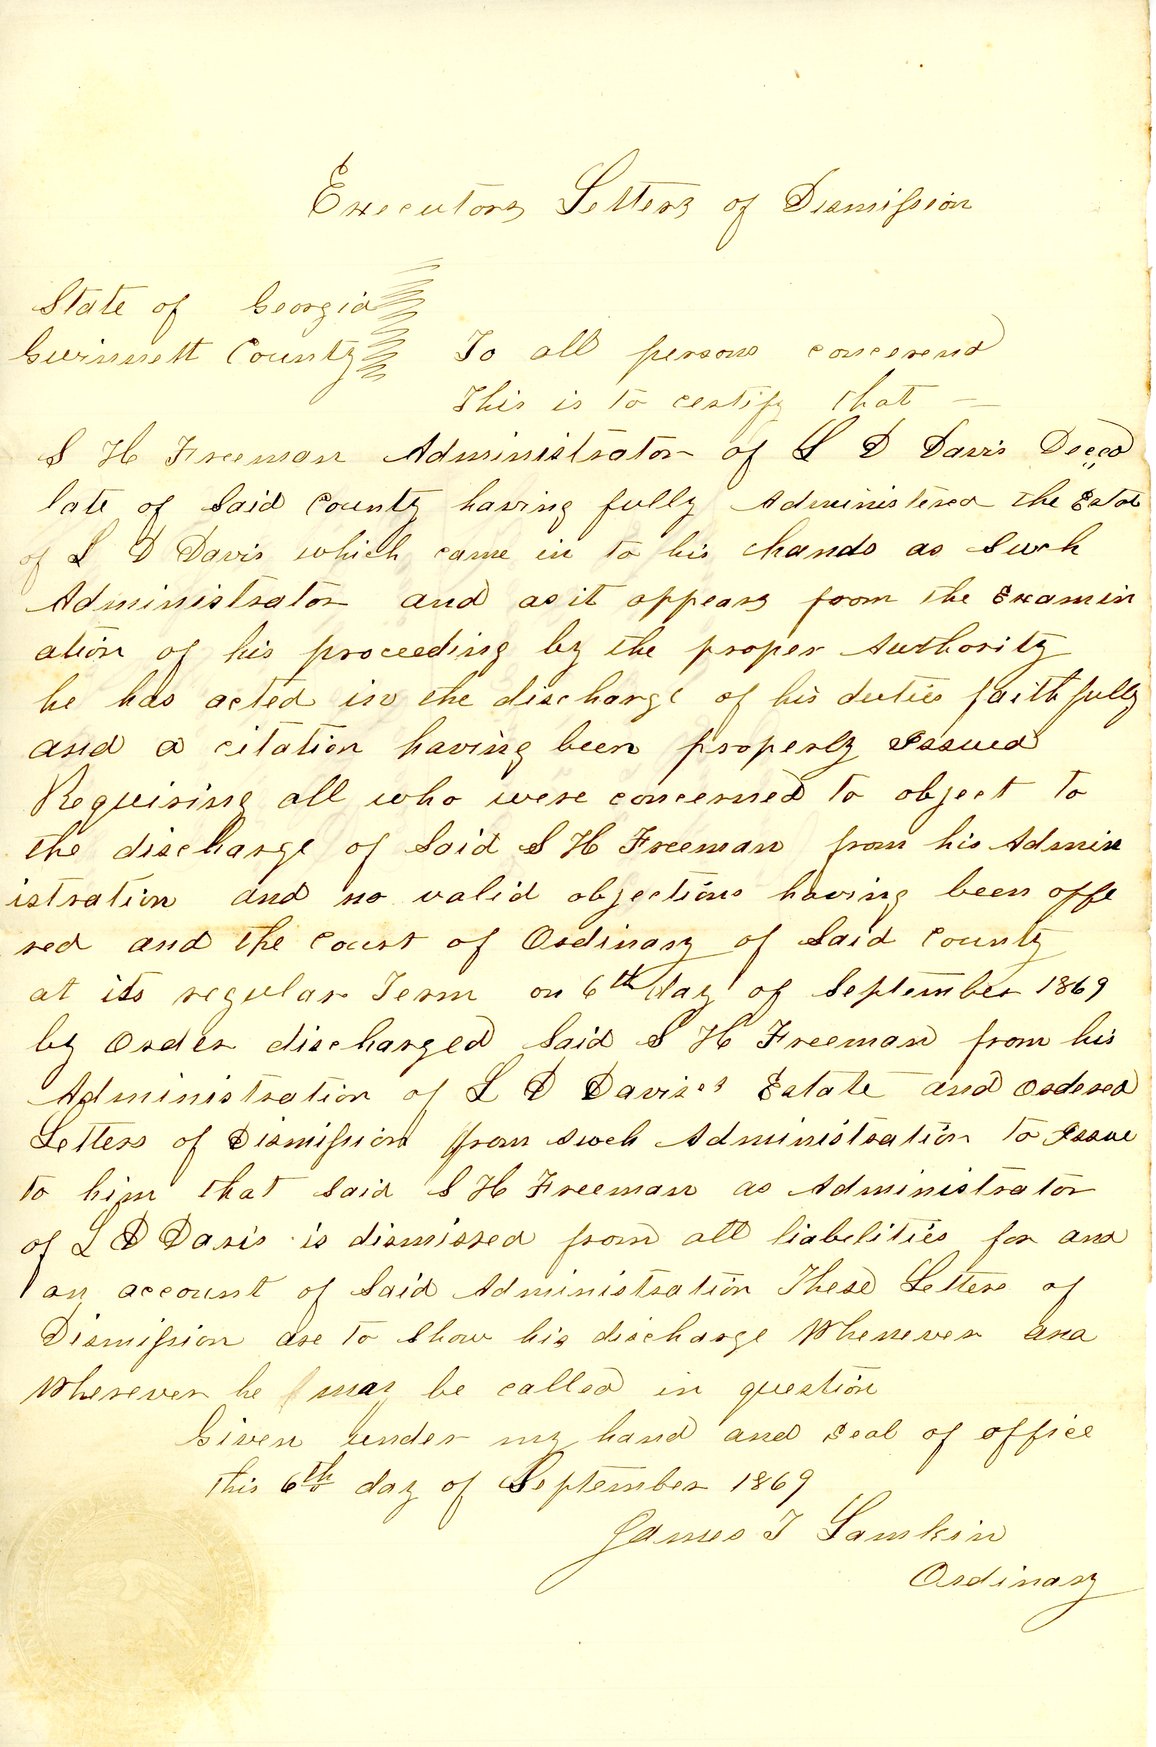 Executors Letters of Dismission
State of Georgia
Gwinnett County To all persons concerend
This is to certify that —
S H Freeman Administrator of L D Davis Decd
late of Said County having fully Administered the Estate
of L D Davis which came in to his hands as Such
Administrator and as it appears from the Examin
ation of his proceeding by the proper Authority
he has acted in the discharge of his duties faithfully
and a citation having been properly Issued
Requiring all who were concerned to object to
the discharge of Said S H Freeman from his Admin
istration and no valid objections having been offe
red and the Court of Ordinary of Said County
at its regular Term on 6th day of September 1869
by Order discharged Said S H Freeman from his
Administration of L D Davis's Estate and Ordered
Letters of Dismission from such Administration to Issue
to him that Said S H Freeman as Administrator
of L D Davis is dismissed from all liabelities for and
on account of Said Administration These Letters of
Dismission are to Show his discharge Whenever and
Wherever he may be called in question
Given under my hand and seal of office
this 6th day of September 1869
James T Lamkin
Ordinary